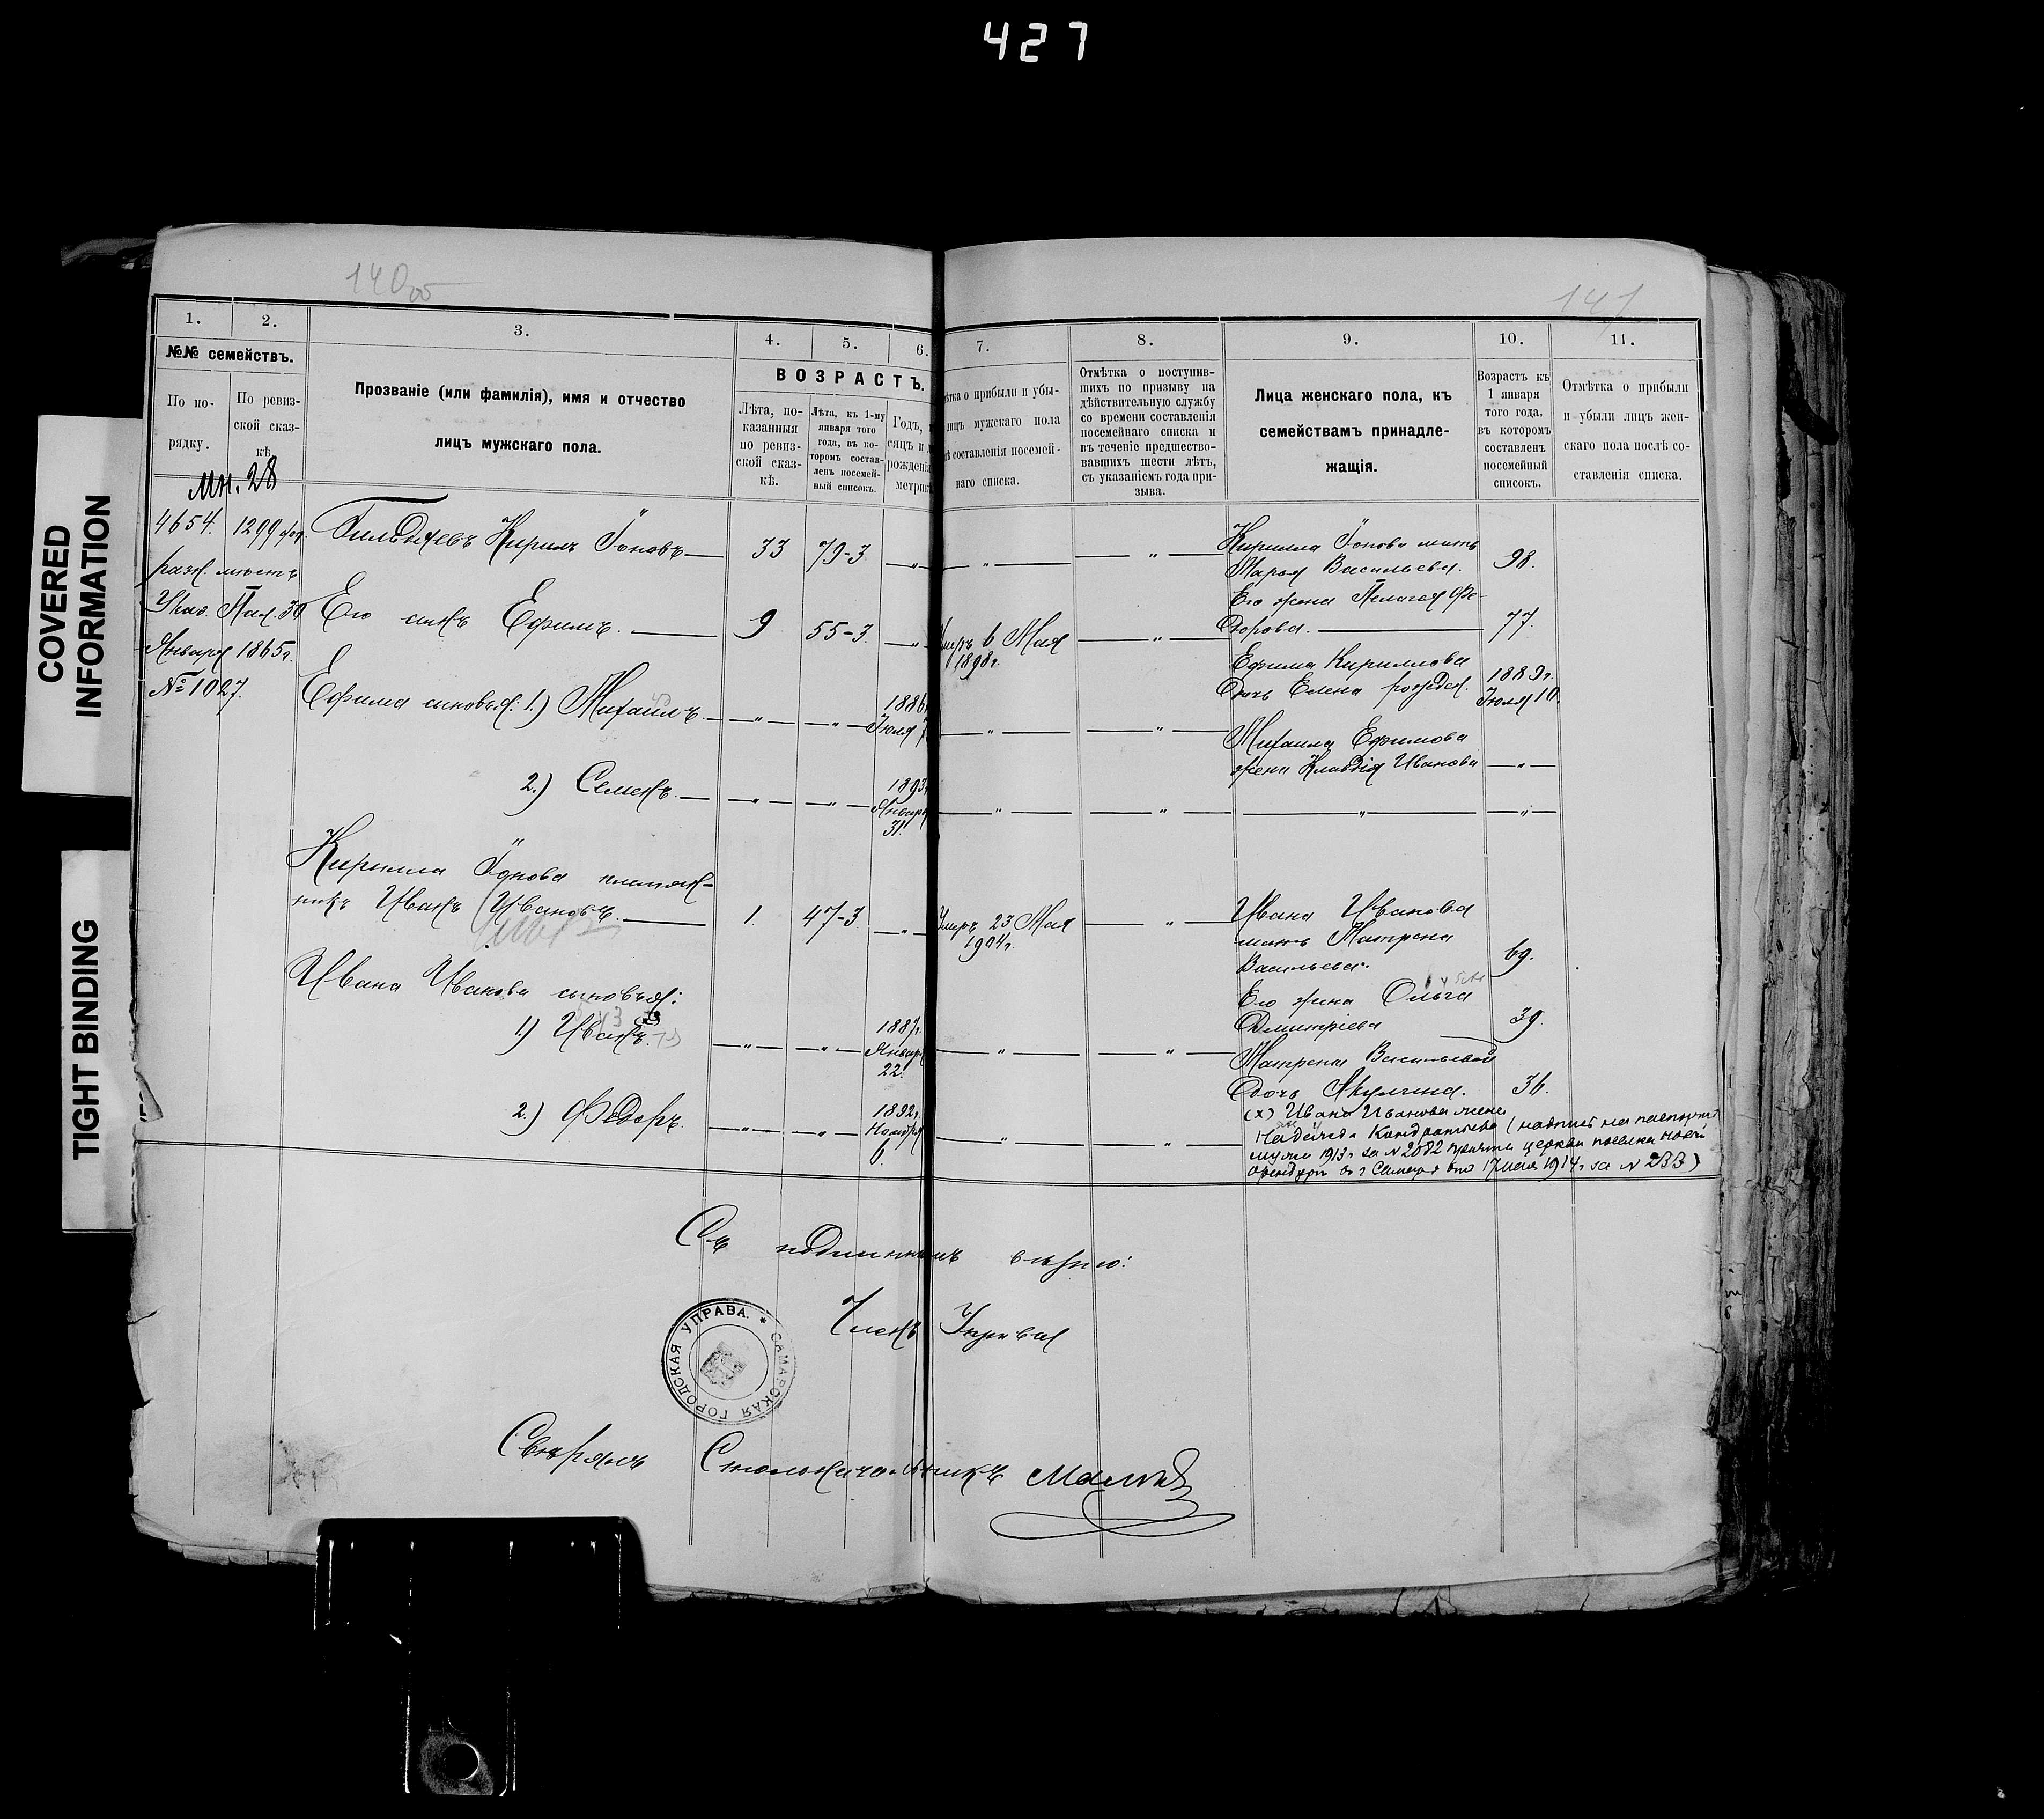 427
COVERED
INFORMATION
TIGHT BINDING
140об
141
1. 2. 3. 4. 5. 6. 7. 8. 9. 10. 11.
№№ семействъ.
По по-
рядку.
По ревиз-
ской сказ-
кѣ.
Прозваніе (или фамилія), имя и отчество
лицъ мужскаго пола.
ВОЗРАСТЪ.
Лѣта, по-
казанныя
по ревиз-
ской сказ-
кѣ.
Лѣта, къ 1-му
января того
года, въ ко-
торомъ состав-
ленъ посемей-
ный списокъ.
Годъ,
сяцъ и
рожденія
метрик
тка о прибыли и убы-
лицъ мужскаго пола
ѣ составленія посемей-
наго списка.
Отмѣтка о поступив-
шихъ по призыву на
дѣйствительную службу
со времени составленія
посемейнаго списка и
въ теченіе предшество-
вавшихъ шести лѣтъ,
съ указаніемъ года при-
зыва.
Лица женскаго пола, къ
семействамъ принадле-
жащія.
Возрастъ къ
1 января
того года,
въ которомъ
составленъ
посемейный
списокъ.
Отмѣтка о прибыли
и убыли лицъ жен-
скаго пола послѣ со-
ставленія списка.
мн. 28
4654. 1299 Кирилъ Іоновъ 33 79-3 " " "
разн. мѣстъ
Указ. Пал. 30
Января 1865г.
№ 1027.
Кирилла Іонова мать
Марья Васильева. 98.
Его сынъ Ефимъ. 9 55-3. " Умеръ 6 Мая
1898г. "
Его жена Пелагея Фе-
дорова. 77.
Ефима сыновья: 1.) Михаилъ. " " 1886
Іюля " "
Ефима Кириллова
дочь Елена рожден. 1889г.
Іюля 10.
Михаила Ефимова
жена Клавдія Иванова "
2.) Семенъ. " " 1893
Января
31. " " " "
Кирилла Іонова племян-
никъ Иванъ Ивановъ. 1. 47-3. " Умеръ 23 Мая
1904г. "
Ивана Иванова
мать Матрена
Васильева. 69.
Ивана Иванова сыновья:
Его жена Ольга
Дмитріева 39.
1) Иванъ. " " 1887г.
Января
22. " "
Матрены Васильевой
дочь Акулина. 36.
2.) Ѳедоръ. " " 1892г.
Ноября
6. " "
(х) Ивана Иванова жена
Надежда Кондратьева (надпись на паспорт
мужа 1913г за № 2082 церкви поселка Новый
Оренбург 17 мая 1914г за № 233)
Съ подлиннымъ вѣрно:
Членъ Управы
САМАРСКАЯ ГОРОДСКАЯ УПРАВА.
Свѣрялъ Столоначальникъ